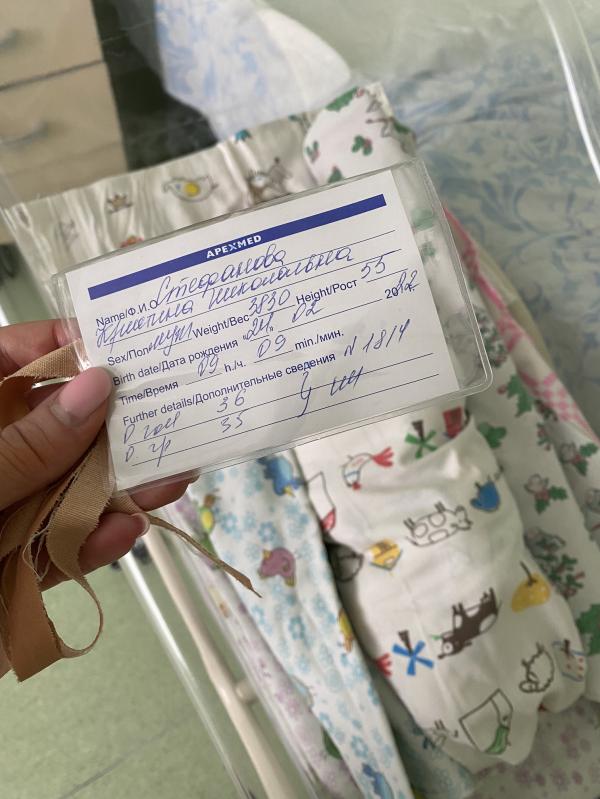 APEXMED
Name/Ф.И.О Стефанова
Кристина Николаевна
Sex/Пол муж Weight/Вес 3830 Height/Рост 55
Birth date/Дата рождения "24" 02 2022
Time/Время 09 h./ч. 09 min./мин.
Further details/Дополнительные сведения N 1814
О гол 36
О гр 35